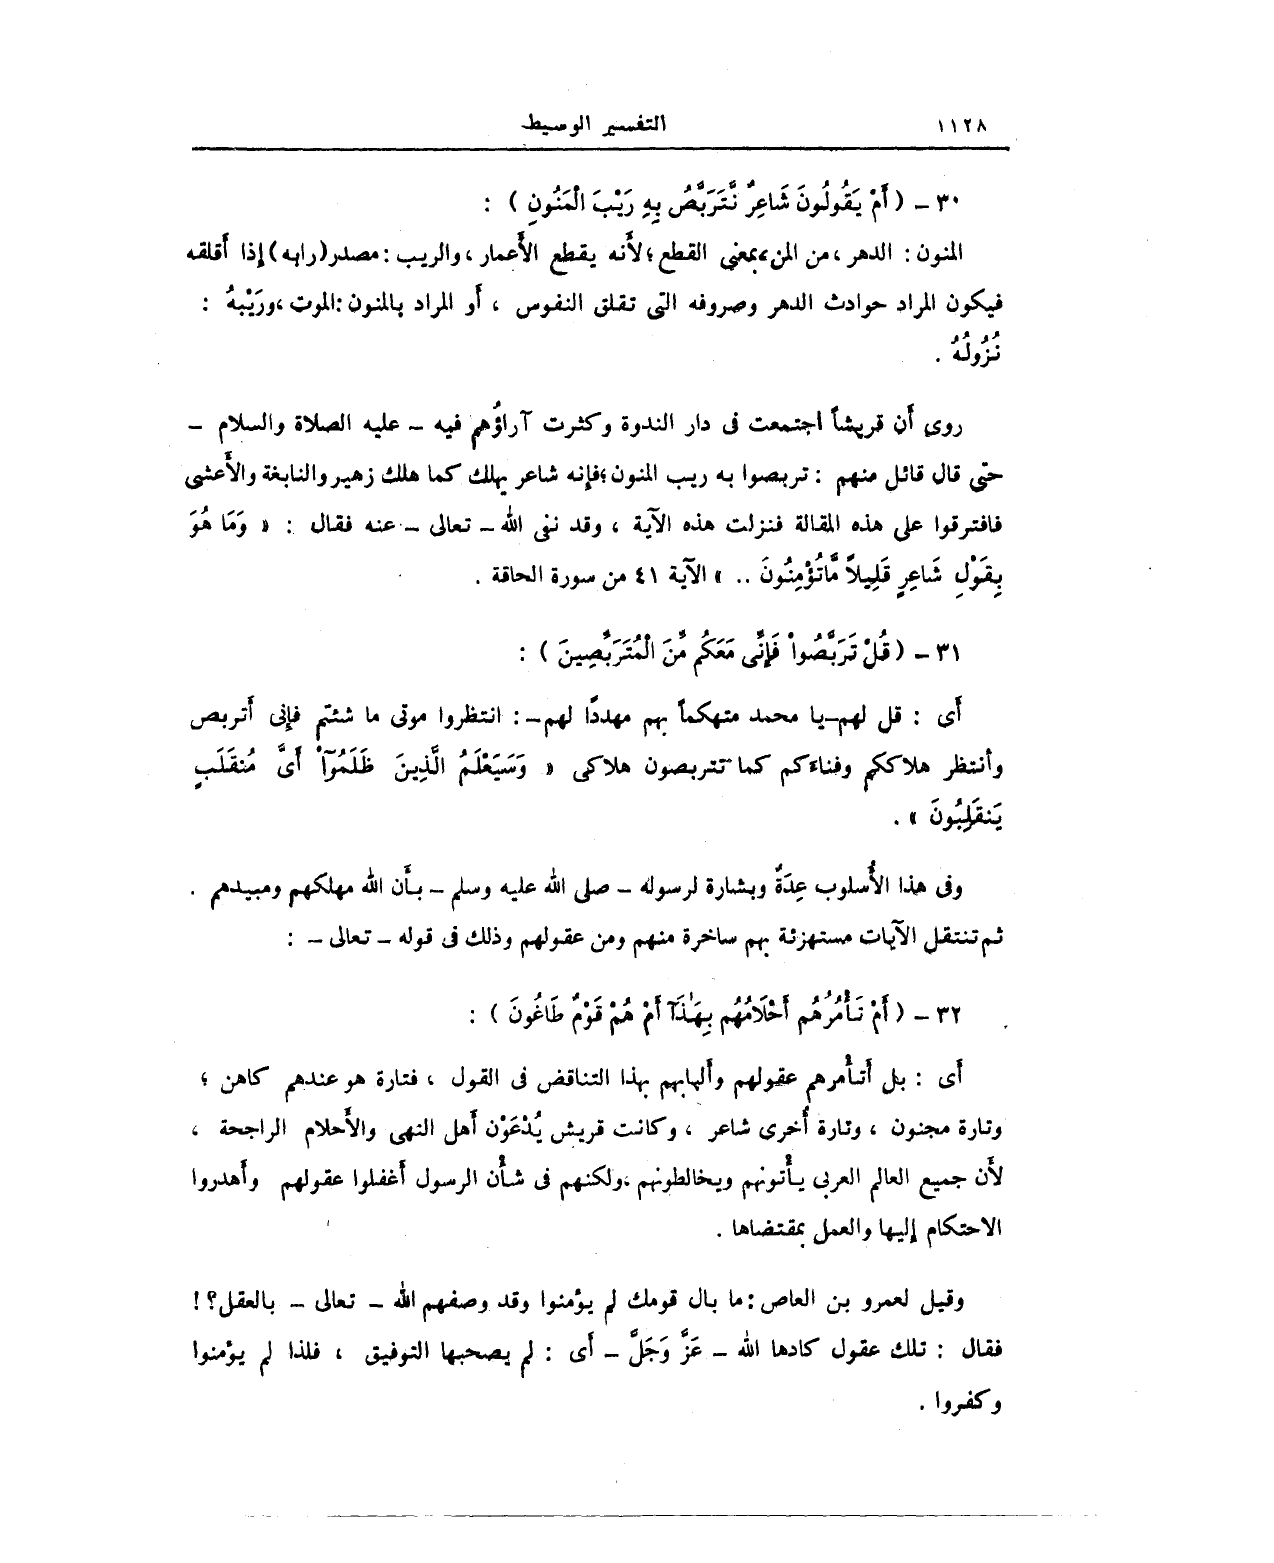 ١١٢٨ التفسير الوسيط
٣٠ – ( أَمْ يَقُولُونَ شَاعِرٌ نَّتَرَبَّصُ بِهِ رَيْبَ الْمَنُونِ ) :
المنون : الدهر ، من المن ، بمعنى القطع ؛ لأَنه يقطع الأَعمار ، والريب : مصدر (رابه) إذا أَقلقه
فيكون المراد حوادث الدهر وصروفه التى تقلق النفوس ، أَو المراد بالمنون : الموت ، ورَيْبهُ :
نُزُولُهُ .
روى أَن قريشاً اجتمعت فى دار الندوة وكثرت آراؤُهم فيه – عليه الصلاة والسلام –
حتى قال قائل منهم : تربصوا به ريب المنون ؛ فإنه شاعر يهلك كما هلك زهير والنابغة والأَعشى
فافترقوا على هذه المقالة فنزلت هذه الآية ، وقد نفى الله – تعالى – عنه فقال : « وَمَا هُوَ
بِقَوْلِ شَاعِرٍ قَلِيلاً مَّاتُؤْمِنُونَ .. » الآية ٤١ من سورة الحاقة .
٣١ – ( قُلْ تَرَبَّصُواْ فَإِنِّى مَعَكُم مِّنَ الْمُتَرَبِّصِينَ ) :
أَى : قل لهم – يا محمد متهكماً بهم مهددًا لهم – : انتظروا موتى ما شئتم فإنى أَتربص
وأنتظر هلاككم وفناءكم كما تتربصون هلاكى « وَسَيَعْلَمُ الَّذِينَ ظَلَمُوٓاْ أَىَّ مُنقَلَبٍ
يَنقَلِبُونَ » .
وفى هذا الأُسلوب عِدَةٌ وبشارة لرسوله – صلى الله عليه وسلم – بأَن الله مهلكهم ومبيدهم .
ثم تنتقل الآيات مستهزئة بهم ساخرة منهم ومن عقولهم وذلك فى قوله – تعالى – :
٣٢ – ( أَمْ تَأْمُرُهُم أَحْلَامُهُم بِهَٰذَآ أَمْ هُمْ قَوْمٌ طَاغُونَ ) :
أَى : بل أَتأْمرهم عقولهم وأَلبابهم بهذا التناقض فى القول ، فتارة هو عندهم كاهن ؛
وتارة مجنون ، وتارة أُخرى شاعر ، وكانت قريش يُدْعَوْن أَهل النهى والأَحلام الراجحة ،
لأَن جميع العالم العربى يأْتونهم ويخالطونهم ، ولكنهم فى شأْن الرسول أَغفلوا عقولهم وأَهدروا
الاحتكام إليها والعمل بمقتضاها .
وقيل لعمرو بن العاص : ما بال قومك لم يؤمنوا وقد وصفهم الله – تعالى – بالعقل ؟ !
فقال : تلك عقول كادها الله – عَزَّ وَجَلَّ – أَى : لم يصحبها التوفيق ، فلذا لم يؤمنوا
وكفروا .